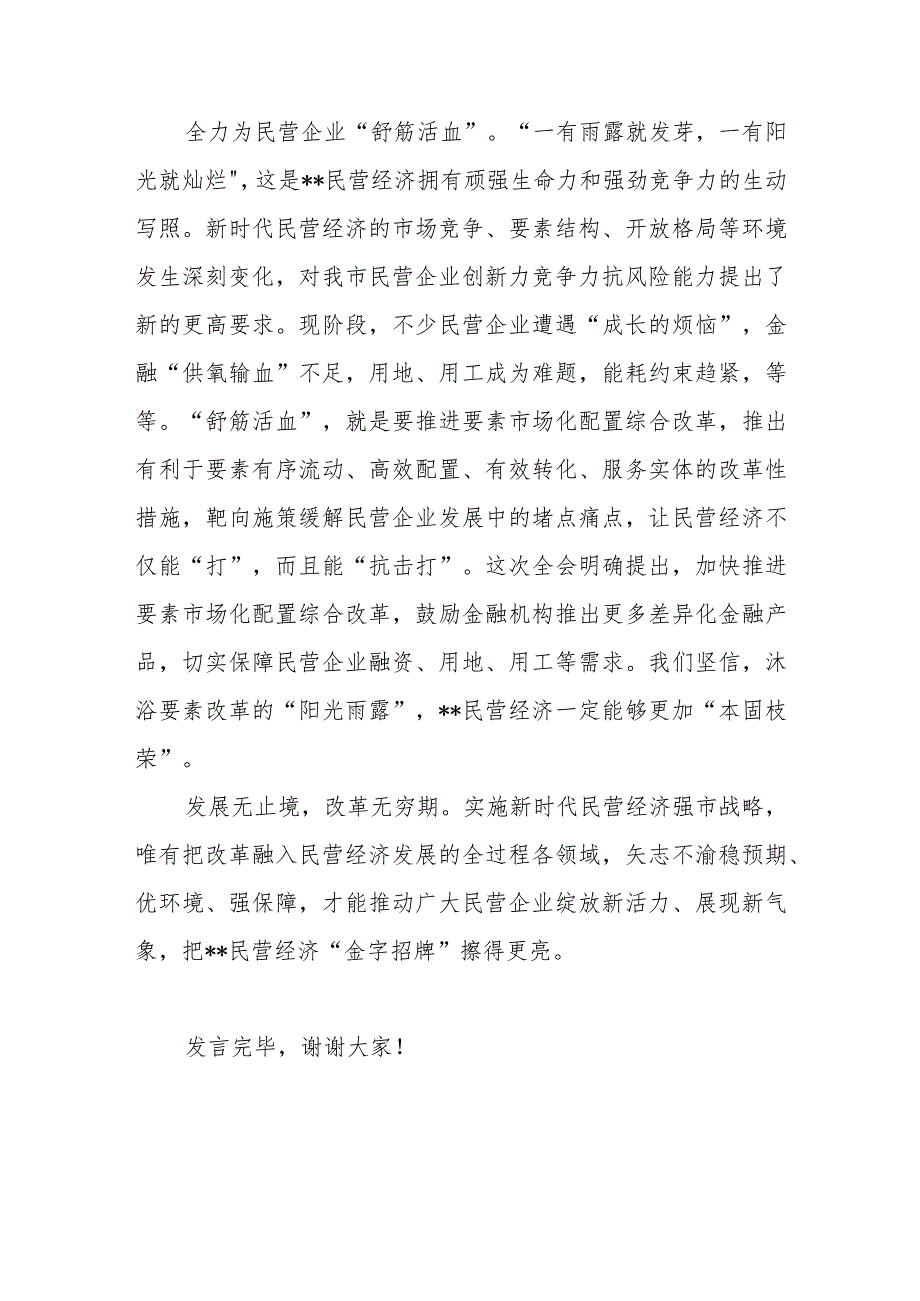 全力为民营企业“舒筋活血”。“一有雨露就发芽，一有阳
光就灿烂"，这是**民营经济拥有顽强生命力和强劲竞争力的生动
写照。新时代民营经济的市场竞争、要素结构、开放格局等环境
发生深刻变化，对我市民营企业创新力竞争力抗风险能力提出了
新的更高要求。现阶段，不少民营企业遭遇“成长的烦恼”，金
融“供氧输血”不足，用地、用工成为难题，能耗约束趋紧，等
等。“舒筋活血”，就是要推进要素市场化配置综合改革，推出
有利于要素有序流动、高效配置、有效转化、服务实体的改革性
措施，靶向施策缓解民营企业发展中的堵点痛点，让民营经济不
仅能“打”，而且能“抗击打”。这次全会明确提出，加快推进
要素市场化配置综合改革，鼓励金融机构推出更多差异化金融产
品，切实保障民营企业融资、用地、用工等需求。我们坚信，沐
浴要素改革的“阳光雨露”，**民营经济一定能够更加“本固枝
荣”。
发展无止境，改革无穷期。实施新时代民营经济强市战略，
唯有把改革融入民营经济发展的全过程各领域，矢志不渝稳预期、
优环境、强保障，才能推动广大民营企业绽放新活力、展现新气
象，把**民营经济“金字招牌”擦得更亮。
发言完毕，谢谢大家！